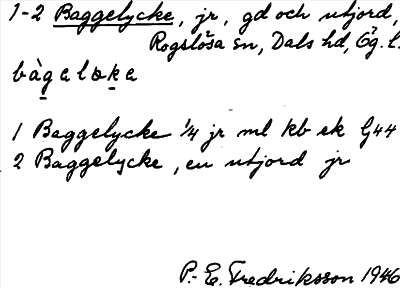 1-2 Baggelycke, jr, gd och utjord,
Rogslösa sn, Dals hd, Ög. l.
bàgelɷke
1 Baggelycke 1/4 jr ml kb ek G44
2 Baggelycke, en utjord jr
P.-E. Fredriksson 1946